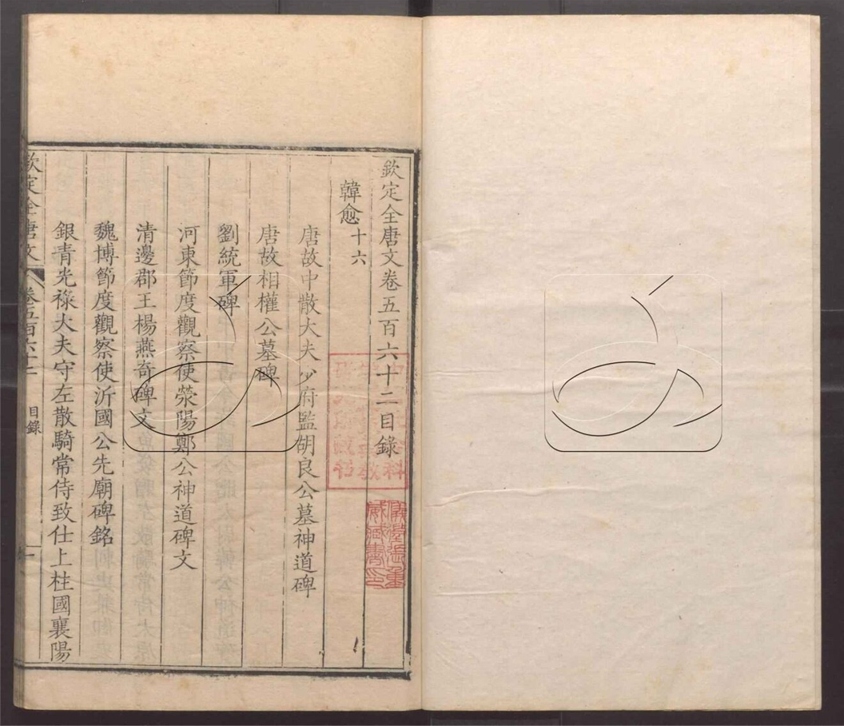 欽定全唐文卷五百六十二目錄
韓愈十六
唐故中散大夫少府監胡良公墓神道碑
唐故相權公墓碑
劉統軍碑
河東節度觀察使滎陽鄭公神道碑文
清邊郡王楊燕奇碑文
魏博節度觀察使沂國公先廟碑銘
銀青光祿大夫守左散騎常侍致仕上柱國襄陽
欽定全唐文 卷五百六十二 目錄 一